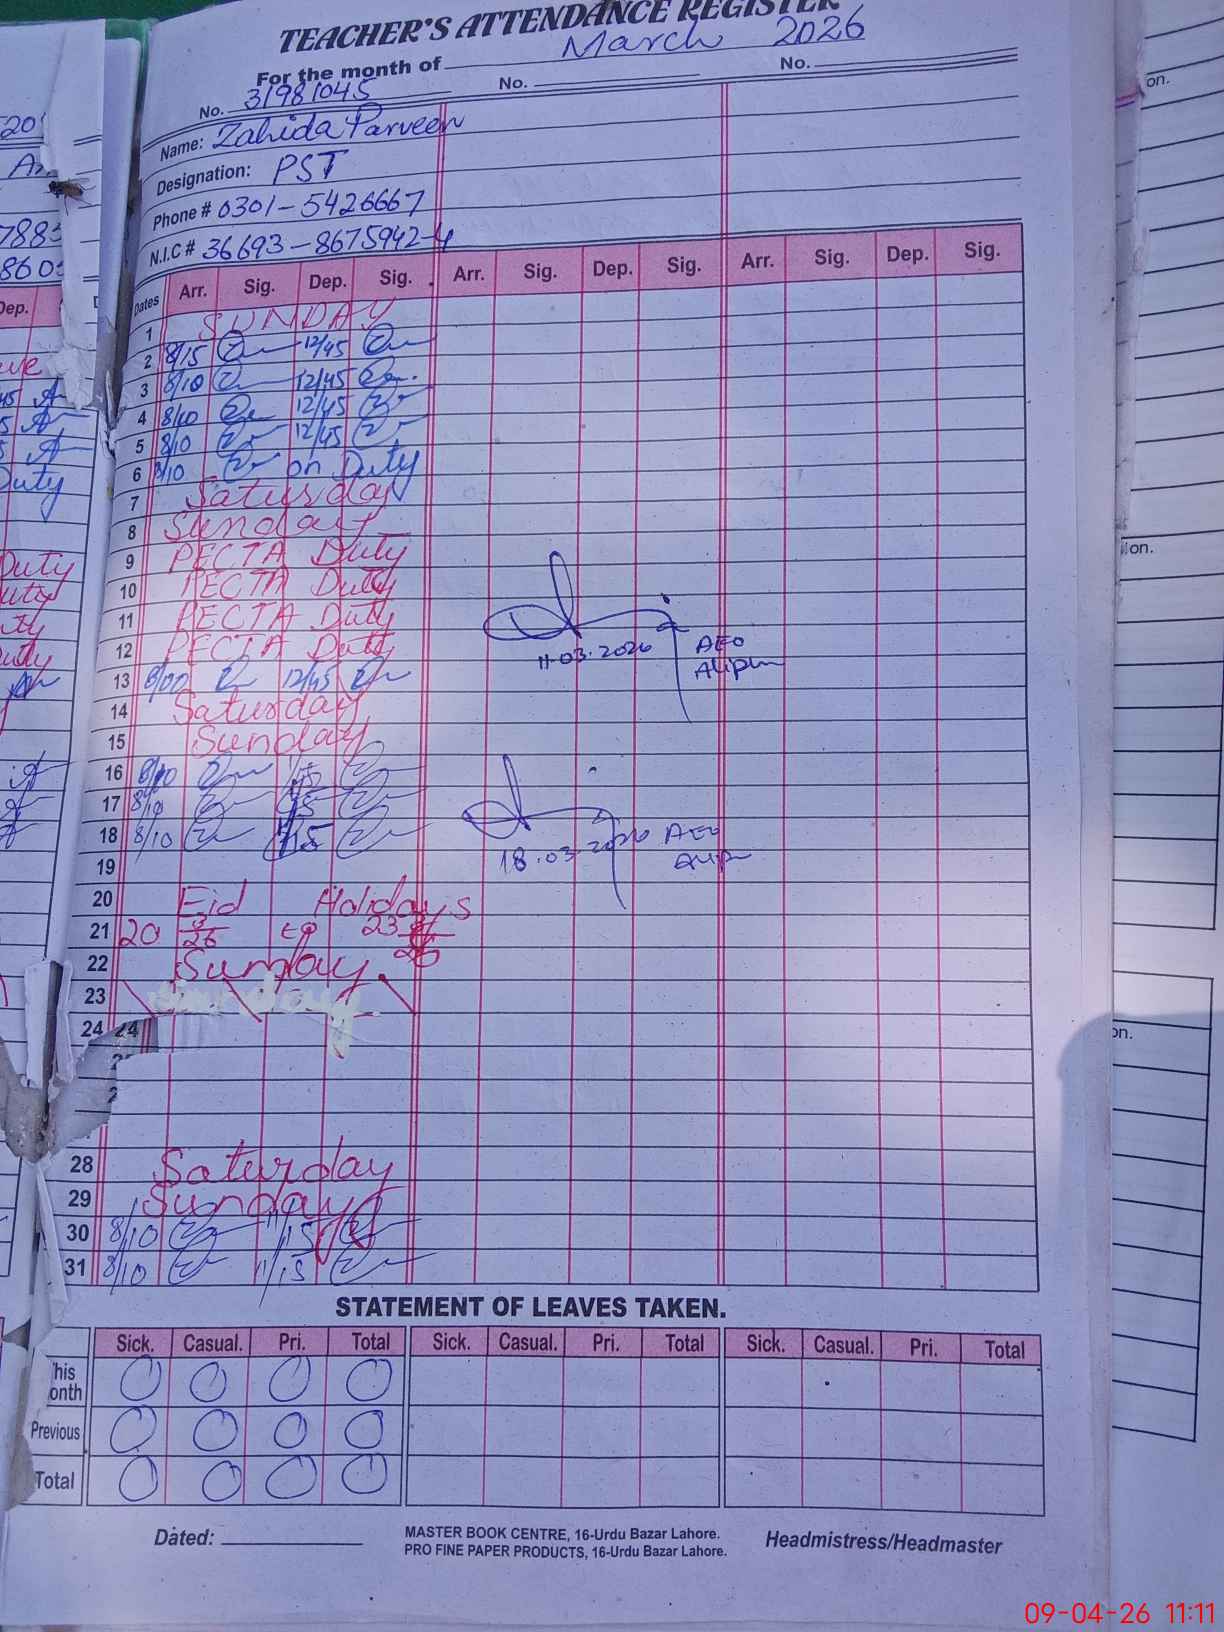 TEACHER'S ATTENDANCE REGISTER
For the month of March 2026
No. 31981045 No. No.
Name: Zahida Parveen
Designation: PST
Phone # 0301-5426667
N.I.C # 36693-8675942-4
Dates Arr. Sig. Dep. Sig. Arr. Sig. Dep. Sig. Arr. Sig. Dep. Sig.
1 SUNDAY
2 8/15 12/45
3 8/10 12/45
4 8/10 12/45
5 8/10 12/45
6 8/10 on Duty
7 Saturday
8 Sunday
9 PECTA Duty
10 PECTA Duty
11 PECTA Duty
12 PECTA Duty
11-03-2026 AEO
13 8/00 12/45
14 Saturday
15 Sunday
16 8/10
17 8/10
18 8/10 1/15
18-03-2026 AEO
19
20 Eid Holidays
21 20 3/26 to 23
22 Sunday
23
24 24
28 Saturday
29 Sunday
30 8/10 1/15
31 8/10 1/15
STATEMENT OF LEAVES TAKEN.
Sick. Casual. Pri. Total Sick. Casual. Pri. Total Sick. Casual. Pri. Total
This Month 0 0 0 0
Previous 0 0 0 0
Total 0 0 0 0
Dated:
MASTER BOOK CENTRE, 16-Urdu Bazar Lahore.
PRO FINE PAPER PRODUCTS, 16-Urdu Bazar Lahore.
Headmistress/Headmaster
09-04-26 11:11